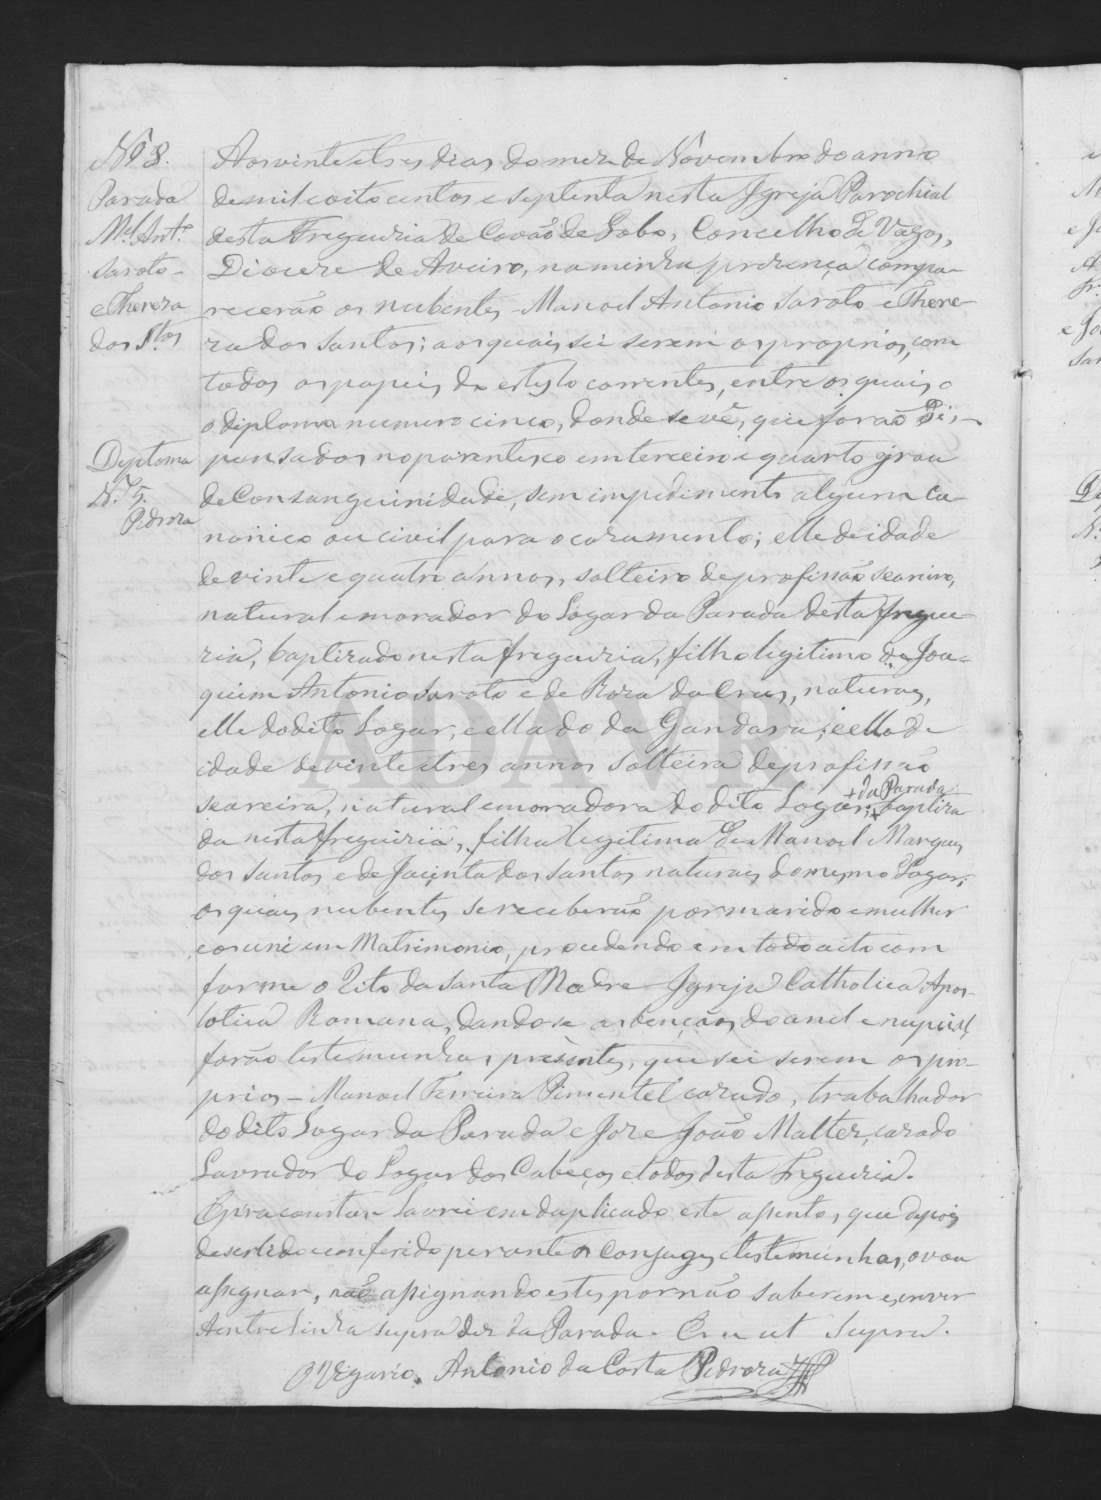 Nº 8.
Parada
M.el Ant.º
Saroto
e Thereza
dos S.tos
Aos vinte e tres dias do mez de Novembro do anno
de mil e oito centos e septenta nesta Igreja Parochial
desta Freguezia de Covão de Lobo, Concelho de Vagos,
Diocere de Aveiro, na minha prezença compa-
recerão os nubentes - Manoel Antonio Saroto e There-
za dos Santos; aos quais sei serem os proprios, com
todos os papeis do estylo correntes, entre os quais, o
o diploma numero cinco, donde se vê, que forão Dis-
Deploma
N.º 5.
Pedroza
pensados no parentesco em terceiro e quarto grau
de Consanguinidade, sem impedimento algum Ca-
nonico ou civil para o cazamento; elle de idade
de vinte e quatro annos, solteiro de profissão seareiro,
natural e morador do Logar da Parada desta fregue-
zia, baptizado nesta freguezia, filho ligitimo de Joa-
quim Antonio Saroto e de Roza da Crus, naturaes,
elle do dito Logar, e ella do da Gandara; e ella de
idade de vinte e tres annos solteira de profissão
seareira, natural e moradora do dito Logar; + da Parada + baptiza
da nesta freguezia, filha legitima de Manoel Marques
dos Santos e de Jacinta dos Santos naturaes do mesmo Logar;
os quaes nubentes se receberão por marido e mulher
e os uni em Matrimonio, procedendo em todo acto com
forme o Rito da Santa Madre Igreja Catholica Apos-
tolica Romana, dando se as bençãos do anel e nupciaes,
forão testemunhas prèsentes, que sei serem os pro-
prios - Manoel Ferreira Pimentel cazado, trabalhador
do dito Logar da Parada e Joze João Malter, cazado
Lavrador do Logar dos Cabeços e todos desta Freguezia.
E pra constar lavrei em duplicado este assento, que depois
de ser lido e conferido perante os Conjuges e testemunhas, o vou
assignar, não assignando estes por não saberem escrever
A entrelinha supra diz da Parada. Era ut Supra.
O Vigario. Antonio da Costa Pedroza
ADAVR